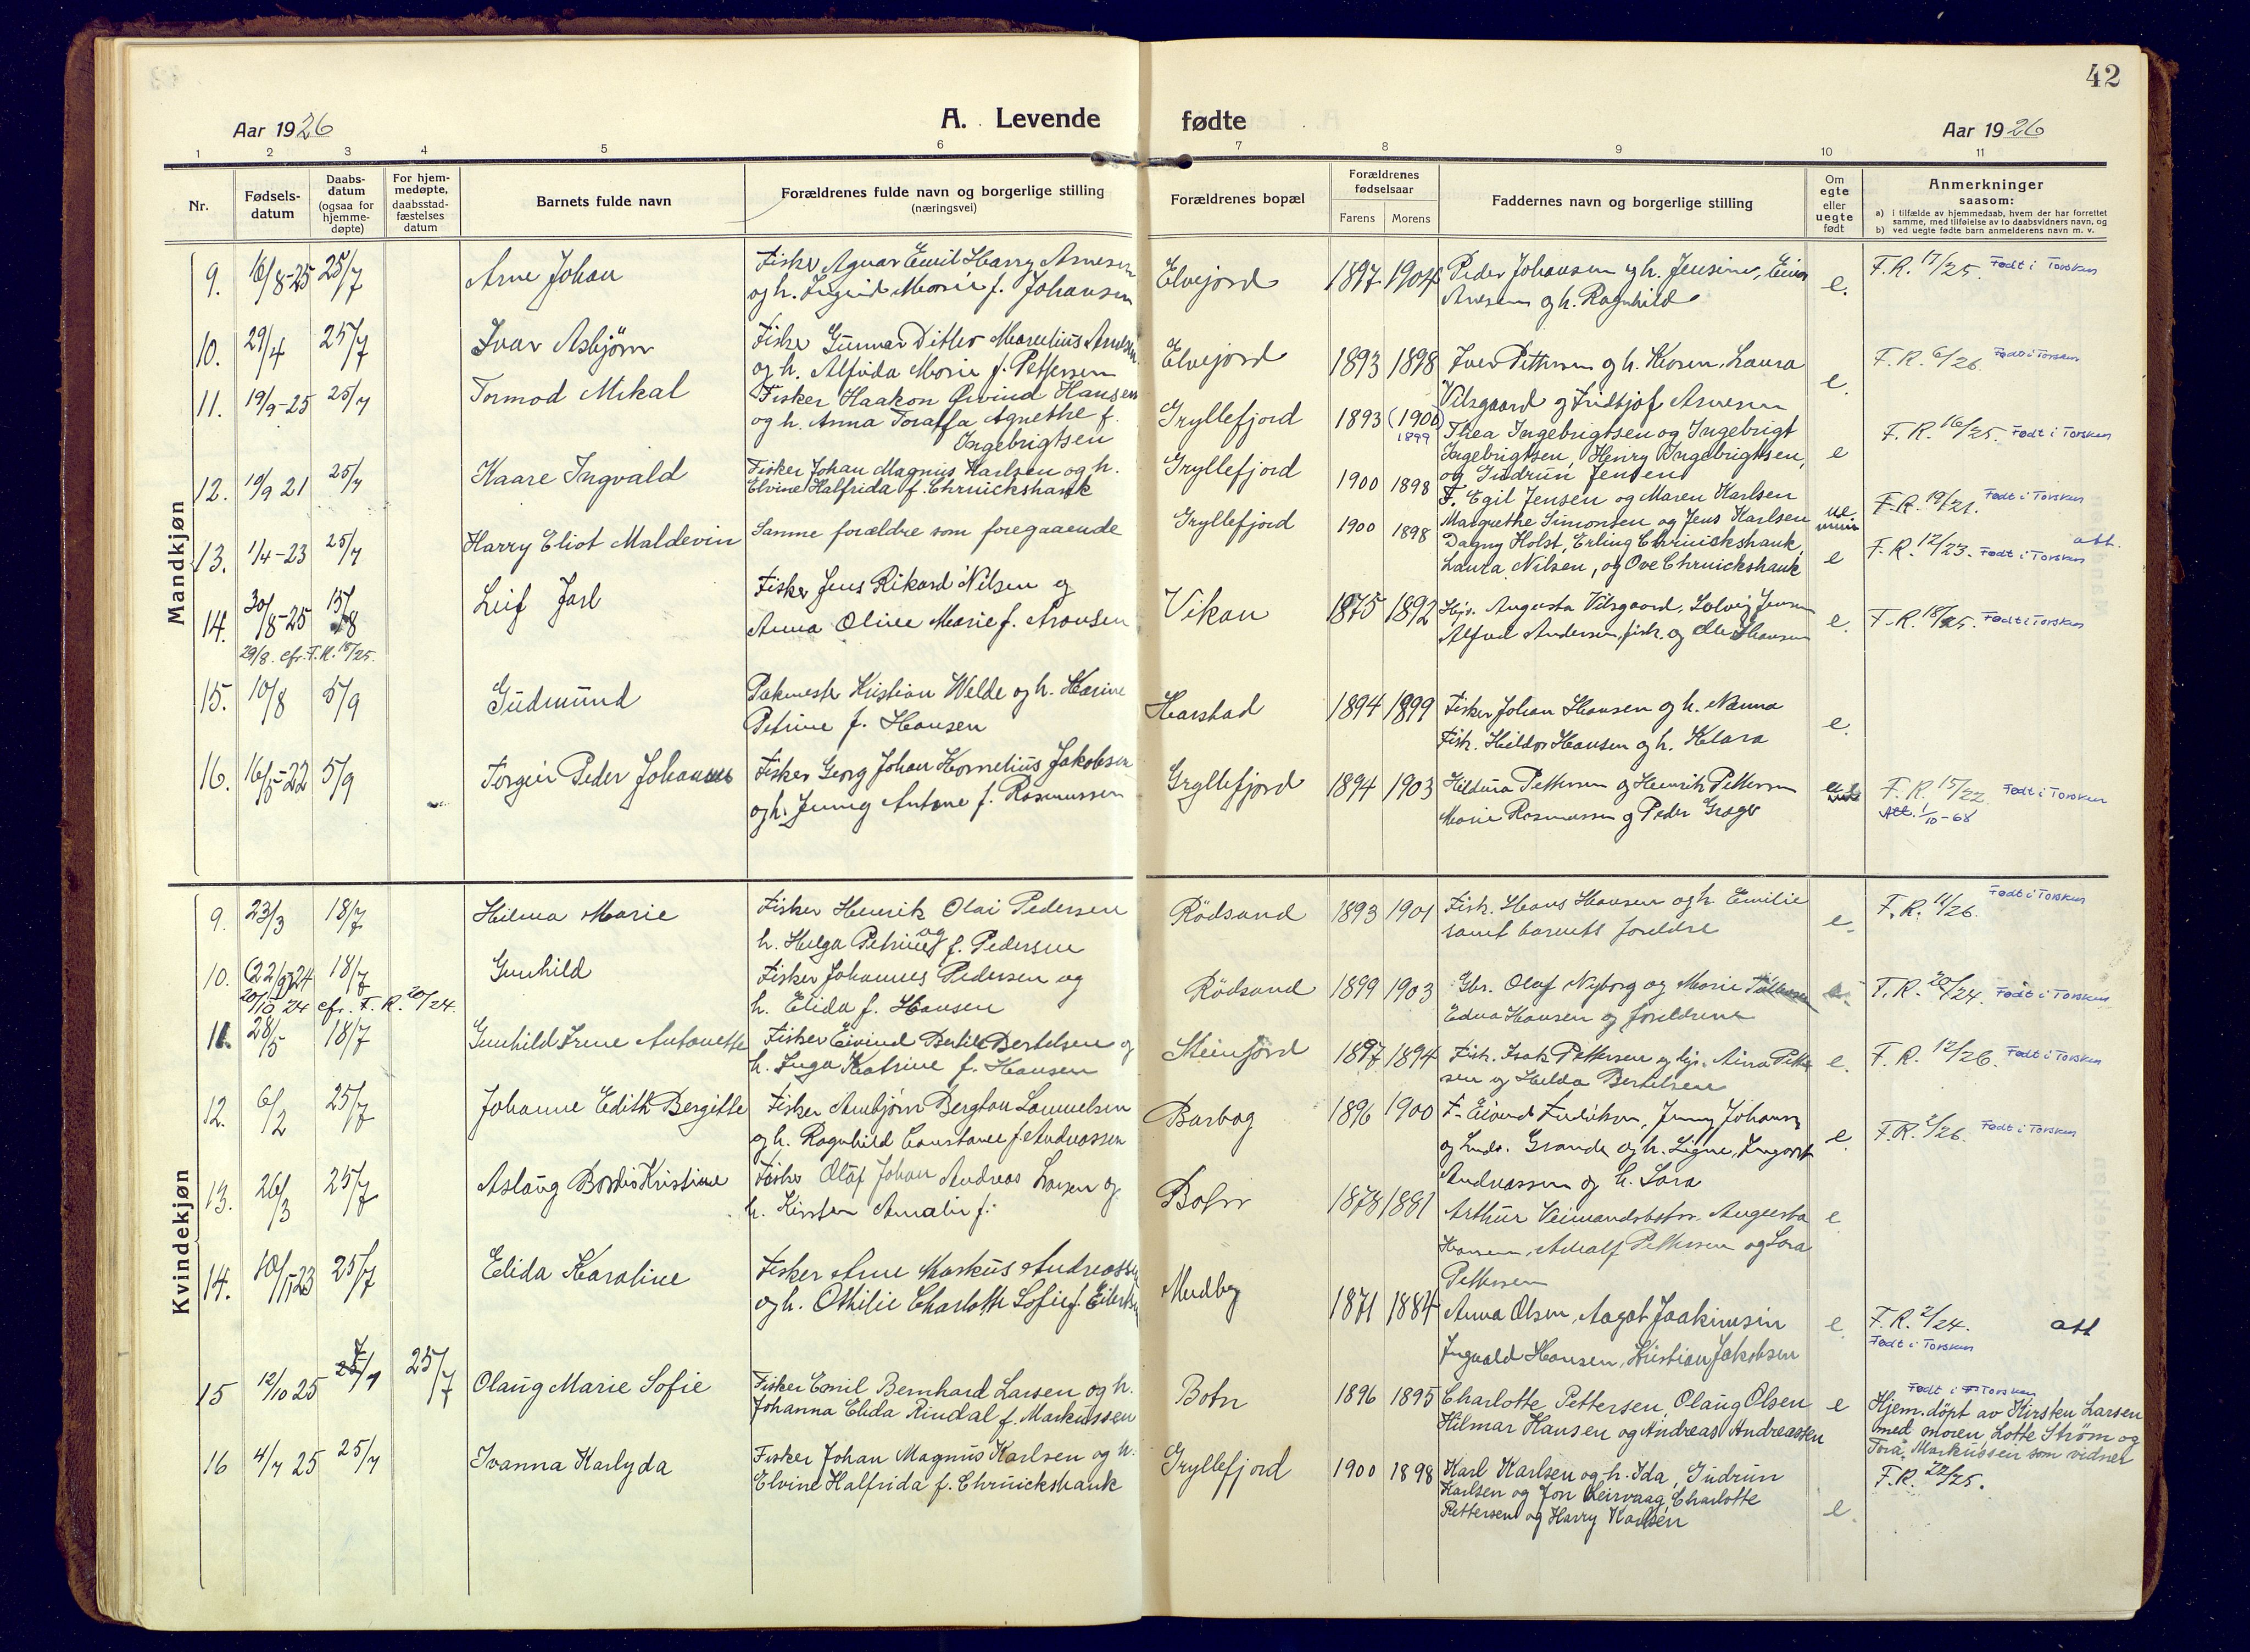 42
Aar 1926
A. Levende fødte
Aar 1926
1 2 3 4 5 6 7 8 9 10 11
Nr.
Fødsels-
datum
Daabs-
datum
(ogsaa for
hjemme-
døpte)
For hjem-
medøpte,
daabsstad-
fæstelses
datum
Barnets fulde navn
Forældrenes fulde navn og borgerlige stilling
(næringsvei)
Forældrenes bopæl
Forældrenes
fødselsaar
Farens Morens
Faddernes navn og borgerlige stilling
Om
egte
eller
uegte
født
Anmerkninger
saasom:
a) i tilfælde av hjemmedaab, hvem der har forrettet
samme, med tilføielse av to daabsvidners navn, og
b) ved uegte fødte barn anmelderens navn m. v.
Mandkjøn
9. 16/8-25 25/7 Arne Johan
Fisker Agnar Emil Harry Arnesen
og h. Ingrid Marie f. Johansen
Elvejord 1897 1904
Peder Johansen og h. Jensine, Einar
Arnesen og h. Ragnhild
e. F.R. 17/25. Født i Torsken
10. 29/4 25/7 Ivar Asbjörn
Fisker Gunnar Ditlev Marelius Arnesen
og h. Alfida Marie f. Pettersen
Elvejord 1893 1898
Iver Pettersen og h. Karen, Laura
Vilsgaard og Fridtjof Arnesen
e. F.R. 6/26. Født i Torsken
11. 19/9-25 25/7 Tormod Mikal
Fisker Haakon Øivind Hansen
og h. Anna Toraffa Agnethe f.
Ingebrigtsen
Gryllefjord 1893 (1900)
1899
Thea Ingebrigtsen og Ingebrigt
Ingebrigtsen, Henry Ingebrigtsen,
og Gudrun Jensen
e F.R. 16/25. Født i Torsken
12. 10/9 21 25/7 Kaare Ingvald
Fisker Johan Magnus Karlsen og h.
Elvine Halfrida f. Chruickshank
Gryllefjord 1900 1898
F. Egil Jensen og Maren Karlsen
Margrethe Simonsen og Jens Karlsen
ue. F.R. 19/21. Født i Torsken
13. 1/4-23 25/7 Harry Eliot Maldevin
Samme forældre som foregaaende
Gryllefjord 1900 1898
Dagny Holst, Erling Chruickshank,
Laura Nilsen, og Ove Chruickshank
e F.R. 12/23. Født i Torsken
att.
14. 30/8-25 15/8 Leif Jarl
29/8. cfr. F.R. 18/25.
Fisker Jens Rikard Nilsen og
Anna Oline Marie f. Aronsen
Vikan 1875 1892
Hjv. Augusta Vilsgaard, Solveig Jensen
Alfred Andersen, fisk. og Ole Hansen
e. F.R. 18/25. Født i Torsken
15. 10/8 5/9 Gudmund
Kristian Welde og h. Harine
Petrine f. Hansen
Harstad 1894 1899
Fisker Johan Hansen og h. Nanna
Fisk. Heldor Hansen og h. Klara
e.
16. 16/5-22 5/9 Torgeir Peder Johannes
Fisker Georg Johan Kornelius Jakobsen
og h. Jenny Antone f. Rasmussen
Gryllefjord 1894 1903
Hildura Pettersen og Henrik Pettersen
Marie Rasmussen og Peder
F.R. 15/22. Født i Torsken
Att. 1/10-68
Kvindekjøn
9. 23/3 18/7 Hilma Marie
Fisker Henrik Olai Pedersen
og
h. Helga Petrine f. Pedersen
Rödsand 1893 1901
Fisk. Hans Hansen og h. Emilie
samt barnets foreldre
e. F.R. 11/26. Født i Torsken
10. (22/9)24 18/7 Gunhild
20/10 24 cfr. F.R. 20/24.
Fisker Johannes Pedersen og
h. Elida f. Hansen
Rödsand 1899 1903
Gbr. Olaf Nyborg og Marie
Edna Hansen og foreldrene
e. F.R. 20/24. Født i Torsken
11. 28/5 18/7 Gunhild Irene Antonette
Fisker Eivind Bertil Bertelsen og
h. Inga Katrine f. Hansen
Steinfjord 1897 1894
Fisk. Isak Pettersen og hjv. Aina Petter
sen og Helda Bertelsen
e. F.R. 12/26. Født i Torsken
12. 6/2 25/7 Johanne Edith Bergitte
Fisker Arnbjörn Bergton Samuelsen
og h. Ragnhild Constance f. Andreassen
Barbog 1896 1900
F. Eivind Fredriksen, Jenny Johansen
og Grande og h. Signe, Ingvart
Andreassen og h. Sara
e. F.R. 2/26. Født i Torsken
13. 26/3 25/7 Aslaug Bordis Kristine
Fisker Olaf Johan Andreas Larsen og
h. Kirsten Amalie f.
Botn 1878 1881
Arthur Augusta
Hansen, Adealf Pettersen og Sara
Pettersen
e
14. 10/11 23 25/7 Elida Karoline
Fisker Arne Markus Andreassen
og h. Othilie Charlotte Sofie f. Eilertsen
Medby 1871 1884
Anna Olsen, Aagot Joakimsen
Ingvald Hansen, Kristian Jakobsen
e. F.R. 2/24. att
Født i Torsken
15 12/10 25 25/7 Olaug Marie Sofie
Fisker Emil Bernhard Larsen og h.
Johanna Elida Rindal f. Markussen
Botn 1896 1895
Charlotte Pettersen, Olaug Olsen
Hilmar Hansen og Andreas Andreassen
e Født i Torsken
Hjem.döpt av Kirsten Larsen
med moren, Lotte Ström og
Tora Markussen som vidner
16 4/7 25 25/7 Ivanna Karlyda
Fisker Johan Magnus Karlsen og h.
Elvine Halfrida f. Chruickshank
Gryllefjord 1900 1898
Karl Karlsen og h. Ida, Gudrun
Karlsen og Jon Leirvaag, Charlotte
Pettersen og Harry Karlsen
e. F.R. 22/25.